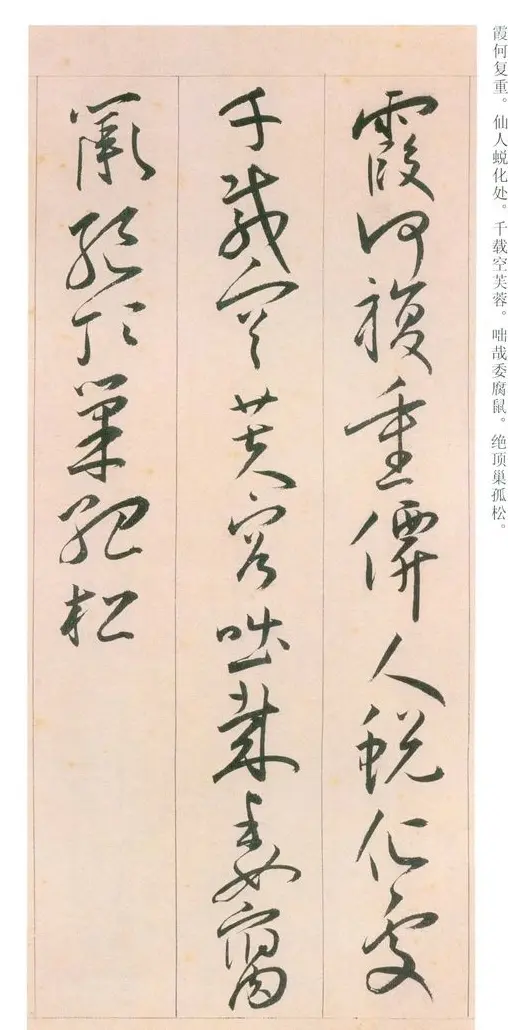 霞何复重。仙人蜕化处。千载空芙蓉。咄哉委腐鼠。绝顶巢孤松。
霞何複重僊人蛻化處
千載空芙容咄哉委腐
鼠絶頂巢孤松